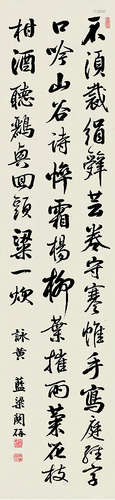 不須裁絹辟芸卷守蹇帷手寫庭經字
口吟山谷詩悴霜楊柳葉摧雨菜花枝
柑酒聽鸝與回頭粱一炊
詠黃 藍梁閣孫